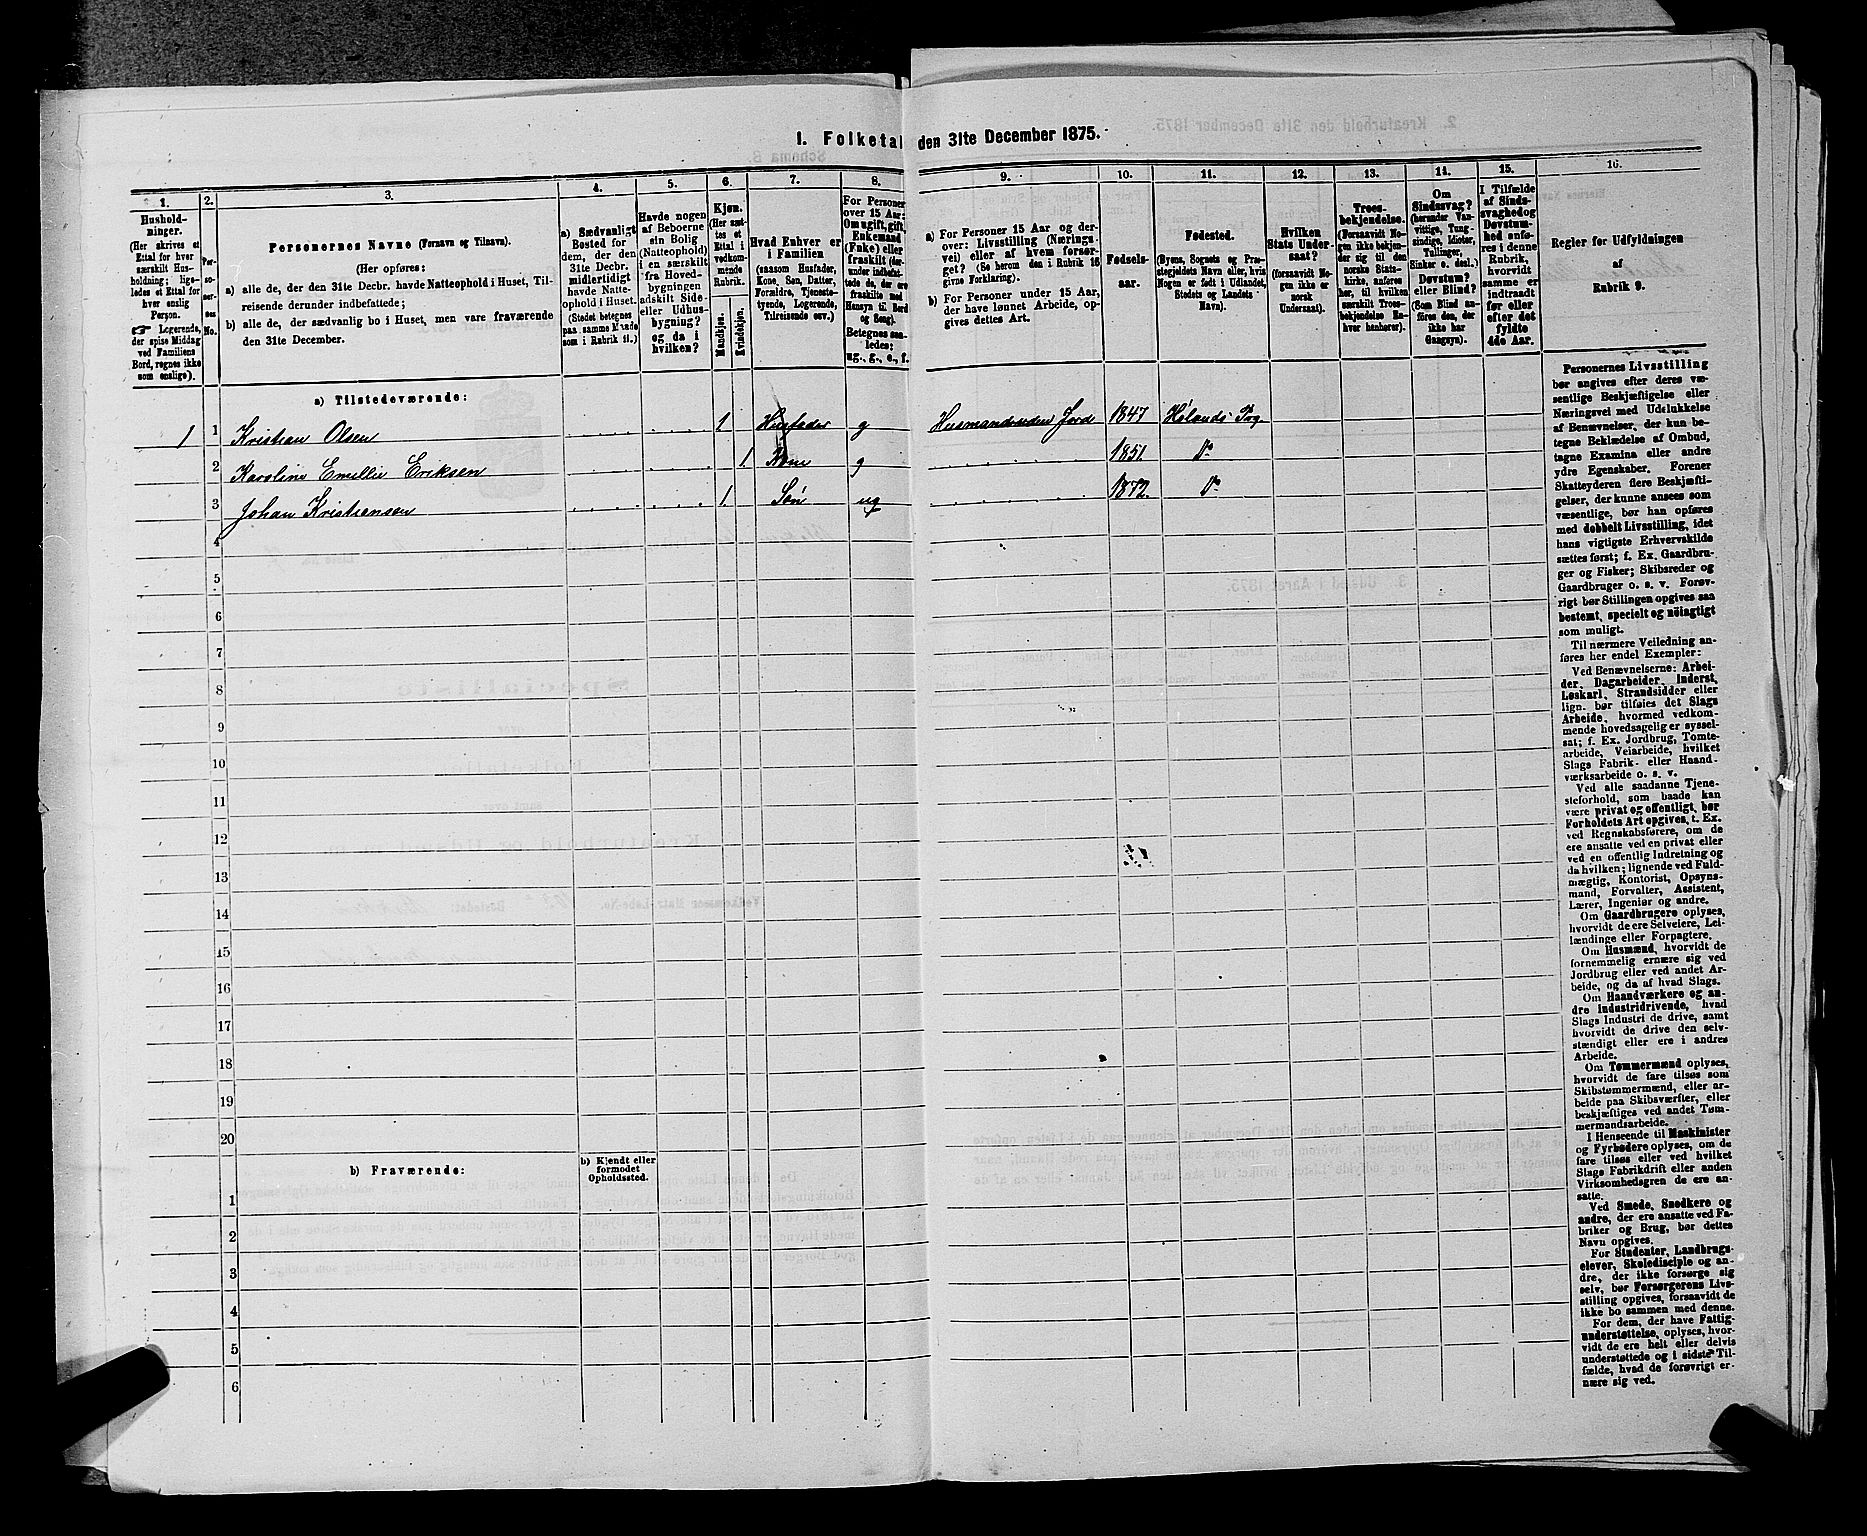 1. Folketal den 31te December 1875.
1.
Hushold-
ninger.
(Her skrives et
Ettal for hver
særskilt Hus-
holdning; lige-
ledes et Ettal for
hver enslig
Person.
☞ Logerende,
der spise Middag
ved Familiens
Bord, regnes ikke
som enslige).
2.
Per-
so-
ner-
nes
No.
3.
Personernes Navne (Fornavn og Tilnavn).
(Her opføres:
a) alle de, der den 31te Decbr. havde Natteophold i Huset, Til-
reisende derunder indbefattede;
b) alle de, der sædvanlig bo i Huset, men vare fraværende
den 31te December.
4.
a) Sædvanligt
Bosted for
dem, der den
31te Decbr.
midlertidigt
havde Natte-
ophold i Huset.
(Stedet betegnes
paa samme Maade
som i Rubrik 11.)
5.
Havde nogen
af Beboerne
sin Bolig
(Natteophold)
i en særskilt
fra Hoved-
bygningen
adskilt Side-
eller Udhus-
bygning?
og da i
hvilken?
6.
Kjøn.
(Her sæt-
tes et
Ettal i
vedkom-
mende
Rubrik.
Mandkjøn.
Kvindekjøn.
7.
Hvad Enhver er
i Familien
(saasom Husfader,
Kone, Søn, Datter,
Forældre, Tjeneste-
tyende, Logerende,
Tilreisende osv.)
8.
For Personer
over 15 Aar:
Om ugift, gift,
Enkemand
(Enke) eller
fraskilt (der-
under indbefat-
tede de, der ere
fraskilte med
Hensyn til Bord
og Seng).
Betegnes saa-
ledes:
ug., g., e., f.
9.
a) For Personer 15 Aar og der-
over: Livsstilling (Nærings-
vei) eller af hvem forsør-
get? (Se herom den i Rubrik 16
givne Forklaring).
b) For Personer under 15 Aar,
der have lønnet Arbeide, op-
gives dettes Art.
10.
Fødsels-
aar.
11.
Fødested.
(Byens, Sognets og Præ-
stegjeldets Navn eller, hvis
Nogen er født i Udlandet,
Stedets og Landets
Navn).
12.
Hvilken
Stats Under-
saat?
(forsaavidt No-
gen ikke er
norsk
Undersaat).
13.
Troes-
bekjendelse.
(Forsaavidt No-
gen ikke bekjen-
der sig til den
norske Stats-
kirke, anføres
her, til hvilken
særskilt Troes-
bekjendelse En-
hver henhører).
14.
Om
Sindssvag?
(herunder Van-
vittige, Tung-
sindige, Idioter,
Tullinger,
Sinker o. desl.)
Døvstum?
eller Blind?
(Som Blind an-
føres den, der
ikke har
Gangsyn).
15.
I Tilfælde
af Sinds-
svaghed og
Døvstum-
hed anfø-
res i denne
Rubrik,
hvorvidt
samme er
indtraadt
før eller
efter det
fyldte
4de Aar.
16.
Regler for Udfyldningen
af
Rubrik 9.
a) Tilstedeværende:
1 1 Kristian Olsen 1 Husfader g Husmand uden Jord 1847 Hølands Pg.
2 Karoline Emilie Eriksen 1 Kone g 1851. Do
3 Johan Kristiansen 1. Søn ug 1872. Do
4
5
6
7
8
9
10
11
12
13
14
15
16
17
18
19
20
b) Fraværende:
b) Kjendt eller
formodet
Opholdssted.
1
2
3
4
5
6
Personernes Livsstilling
bør angives efter deres væ-
sentlige Beskjæftigelse eller
Næringsvei med Udelukkelse
af Benævnelser, der kun be-
tegne Beklædelse af Ombud,
tagne Examina eller andre
ydre Egenskaber. Forener
Skatteyderen flere Beskjæfti-
gelser, der kunne ansees som
væsentlige, bør han opføres
med dobbelt Livsstilling, idet
hans vigtigste Erhvervskilde
sættes først; f. Ex. Gaardbru-
ger og Fisker; Skibsreder og
Gaardbruger o. s. v. Forøv-
rigt bør Stillingen opgives saa
bestemt, specielt og nøiagtigt
som muligt.
Til nærmere Veiledning an-
føres her endel Exempler:
Ved Benævnelserne: Arbei-
der, Dagarbeider, Inderst,
Løskarl, Strandsidder eller
lign. bør tilføies det Slags
Arbeide, hvormed vedkom-
mende hovedsagelig er syssel-
sat; f. Ex. Jordbrug, Tomte-
arbeide, Veiarbeide, hvilket
Slags Fabrik- eller Haand-
værksarbeide o. s. v.
Ved alle saadanne Tjene-
steforhold, som baade kan
være privat og offentligt, bør
Forholdets Art opgives, t. Ex.
ved Regnskabsførere, om de
ere ansatte ved en privat eller
ved en offentlig Indretning og
da hvilken; lignende ved Fuld-
mægtig, Kontorist, Opsyns-
mand, Forvalter, Assistent,
Lærer, Ingeniør og andre.
Om Gaardbrugere oplyses,
hvorvidt de ere Selveiere, Lei-
lændinge eller Forpagtere.
Om Husmænd, hvorvidt de
fornemmelig ernære sig ved
Jordbrug eller ved andet Ar-
beide, og da af hvad Slags.
Om Haandværkere og an-
dre Industridrivende, hvad
Slags Industri de drive, samt
hvorvidt de drive den selv-
stændigt eller ere i andres
Arbeide.
Om Tømmermænd oplyses,
hvorvidt de fare tilsøs som
Skibstømmermænd, eller ar-
beide paa Skibsværfter, eller
beskjæftiges ved andet Tøm-
mermandsarbeide.
I Henseende til Maskinister
og Fyrbødere oplyses, om de
fare tilsøs eller ved hvilket
Slags Fabrikdrift eller anden
Virksomhedsgren de ere an-
satte.
Ved Smede, Snedkere og
andre, der ere ansatte ved Fa-
briker og Brug, bør dettes
Navn opgives.
For Studenter, Landbrugs-
elever, Skoledisciple og an-
dre, der ikke forsørge sig
selv, bør Forsørgerens Livs-
stilling opgives, forsaavidt de
ikke bo sammen med denne.
For dem, der have Fattig-
understøttelse, oplyses, hvor-
vidt de ere helt eller delvis
understøttede og i sidste Til-
fælde, hvad de forøvrigt er-
nære sig ved.